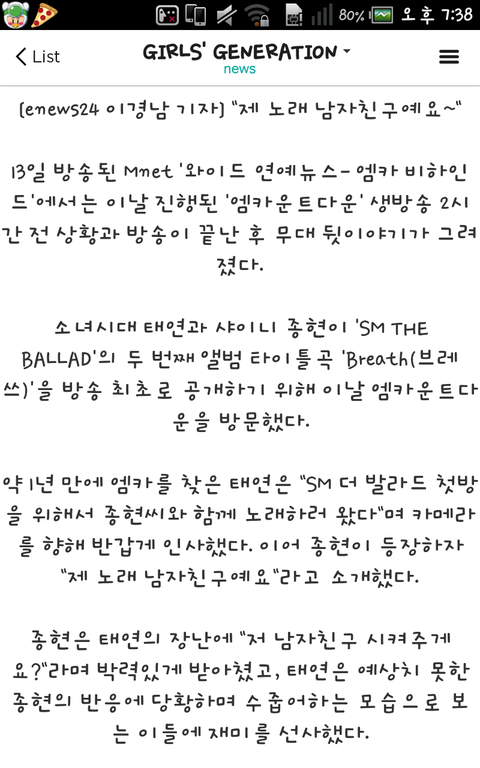 80% 오후 7:38
List
GIRLS' GENERATION
news
(enews24 이경남 기자) "제 노래 남자친구예요~"
13일 방송된 Mnet '와이드 연예뉴스-엠카 비하인
드'에서는 이날 진행된 '엠카운트다운' 생방송 2시
간 전 상황과 방송이 끝난 후 무대 뒷이야기가 그려
졌다.
소녀시대 태연과 샤이니 종현이 'SM THE
BALLAD'의 두 번째 앨범 타이틀곡 'Breath(브레
쓰)'을 방송 최초로 공개하기 위해 이날 엠카운트다
운을 방문했다.
약 1년 만에 엠카를 찾은 태연은 "SM 더 발라드 첫방
을 위해서 종현씨와 함께 노래하러 왔다"며 카메라
를 향해 반갑게 인사했다. 이어 종현이 등장하자
"제 노래 남자친구예요"라고 소개했다.
종현은 태연의 장난에 "저 남자친구 시켜주게
요?"라며 박력있게 받아쳤고, 태연은 예상치 못한
종현의 반응에 당황하며 수줍어하는 모습으로 보
는 이들에 재미를 선사했다.